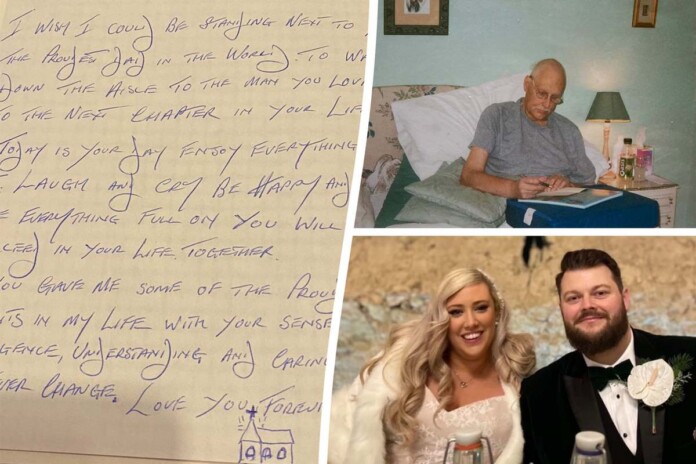 I WISH I COULD BE STANDING NEXT TO
THE PROUDEST DAY IN THE WORLD. TO WA
DOWN THE AISLE TO THE MAN YOU LOVE
TO THE NEXT CHAPTER IN YOUR LIFE
TODAY IS YOUR DAY ENJOY EVERYTHING
LAUGH AND CRY BE HAPPY AND
EVERYTHING FULL ON YOU WILL
CCEED IN YOUR LIFE TOGETHER.
YOU GAVE ME SOME OF THE PROUD
TS IN MY LIFE WITH YOUR SENSE
IGENCE, UNDERSTANDING AND CARING
EVER CHANGE. LOVE YOU FOREVE